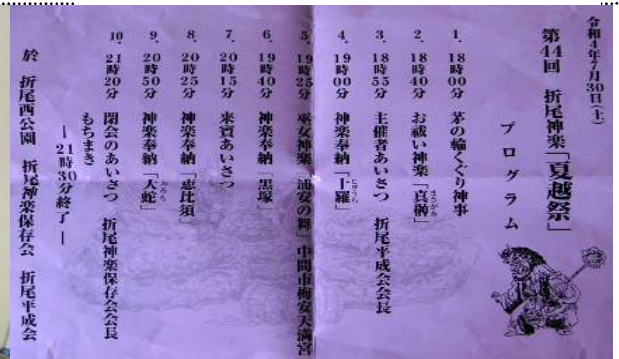 令和4年7月30日(土)
第44回 折尾神楽「夏越祭」
プログラム
1. 18時00分 茅の輪くぐり神事
2. 18時40分 お祓い神楽「真榊」
3. 18時55分 主催者あいさつ 折尾平成会会長
4. 19時00分 神楽奉納「十羅」
5. 19時25分 巫女神楽「浦安の舞」中間市梅安天満宮
6. 19時40分 神楽奉納「黒塚」
7. 20時15分 来賓あいさつ
8. 20時25分 神楽奉納「恵比須」
9. 20時50分 神楽奉納「大蛇」
10. 21時20分 閉会のあいさつ 折尾神楽保存会会長
もちまき
― 21時30分終了 ―
於 折尾西公園 折尾神楽保存会 折尾平成会